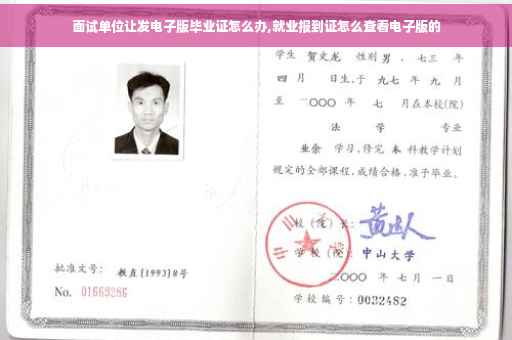 面试单位让发电子版毕业证怎么办,就业报到证怎么查看电子版的
学生 贺文龙 性别 男 、七三 年
四 月 日生,于 九七 年 九 月
至 二〇〇〇 年 七 月在本校(院)
法 学 专业
业余 学习,修完 本 科教学计划
规定的全部课程,成绩合格,准予毕业。
校(院)长:
学校(院): 中山大学
二〇〇〇 年 七 月 一 日
批准文号: 教直(1993)8号
No. 01663286
学校编号:0032482